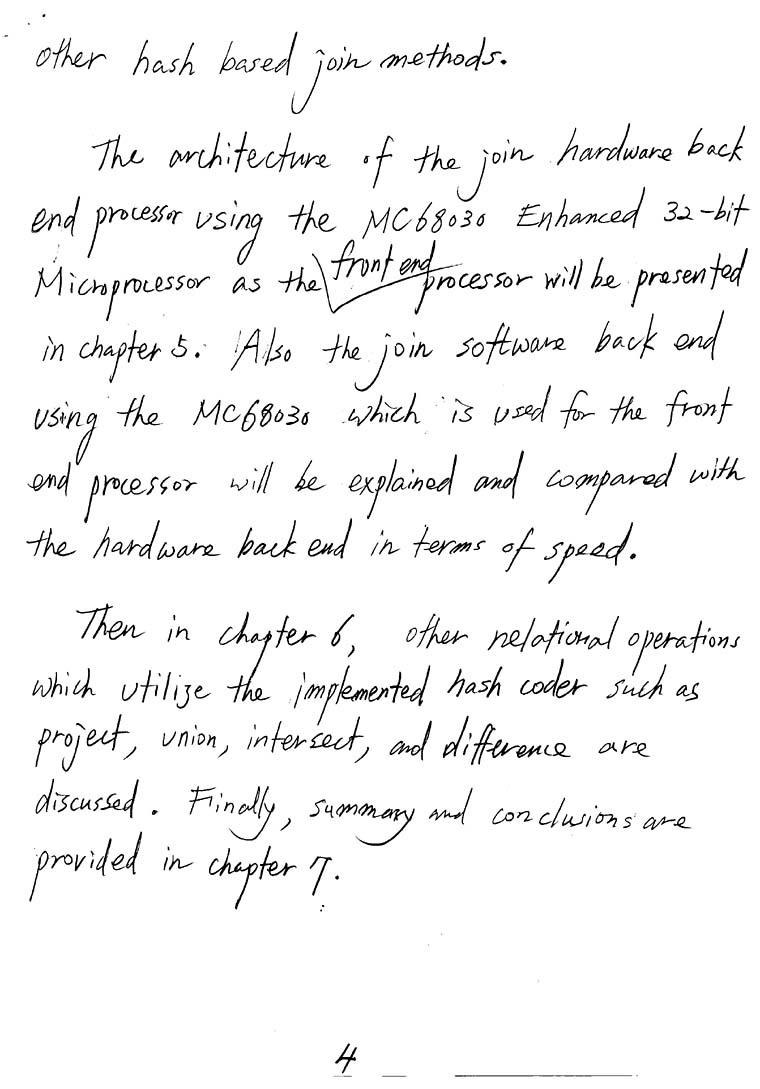 other hash based join methods.
The architecture of the join hardware back
end processor using the MC68030 Enhanced 32-bit
Microprocessor as the front end processor will be presented
in chapter 5. Also the join software back end
using the MC68030 which is used for the front
end processor will be explained and compared with
the hardware back end in terms of speed.
Then in chapter 6, other relational operations
which utilize the implemented hash coder such as
project, union, intersect, and difference are
discussed. Finally, summary and conclusions are
provided in chapter 7.
4